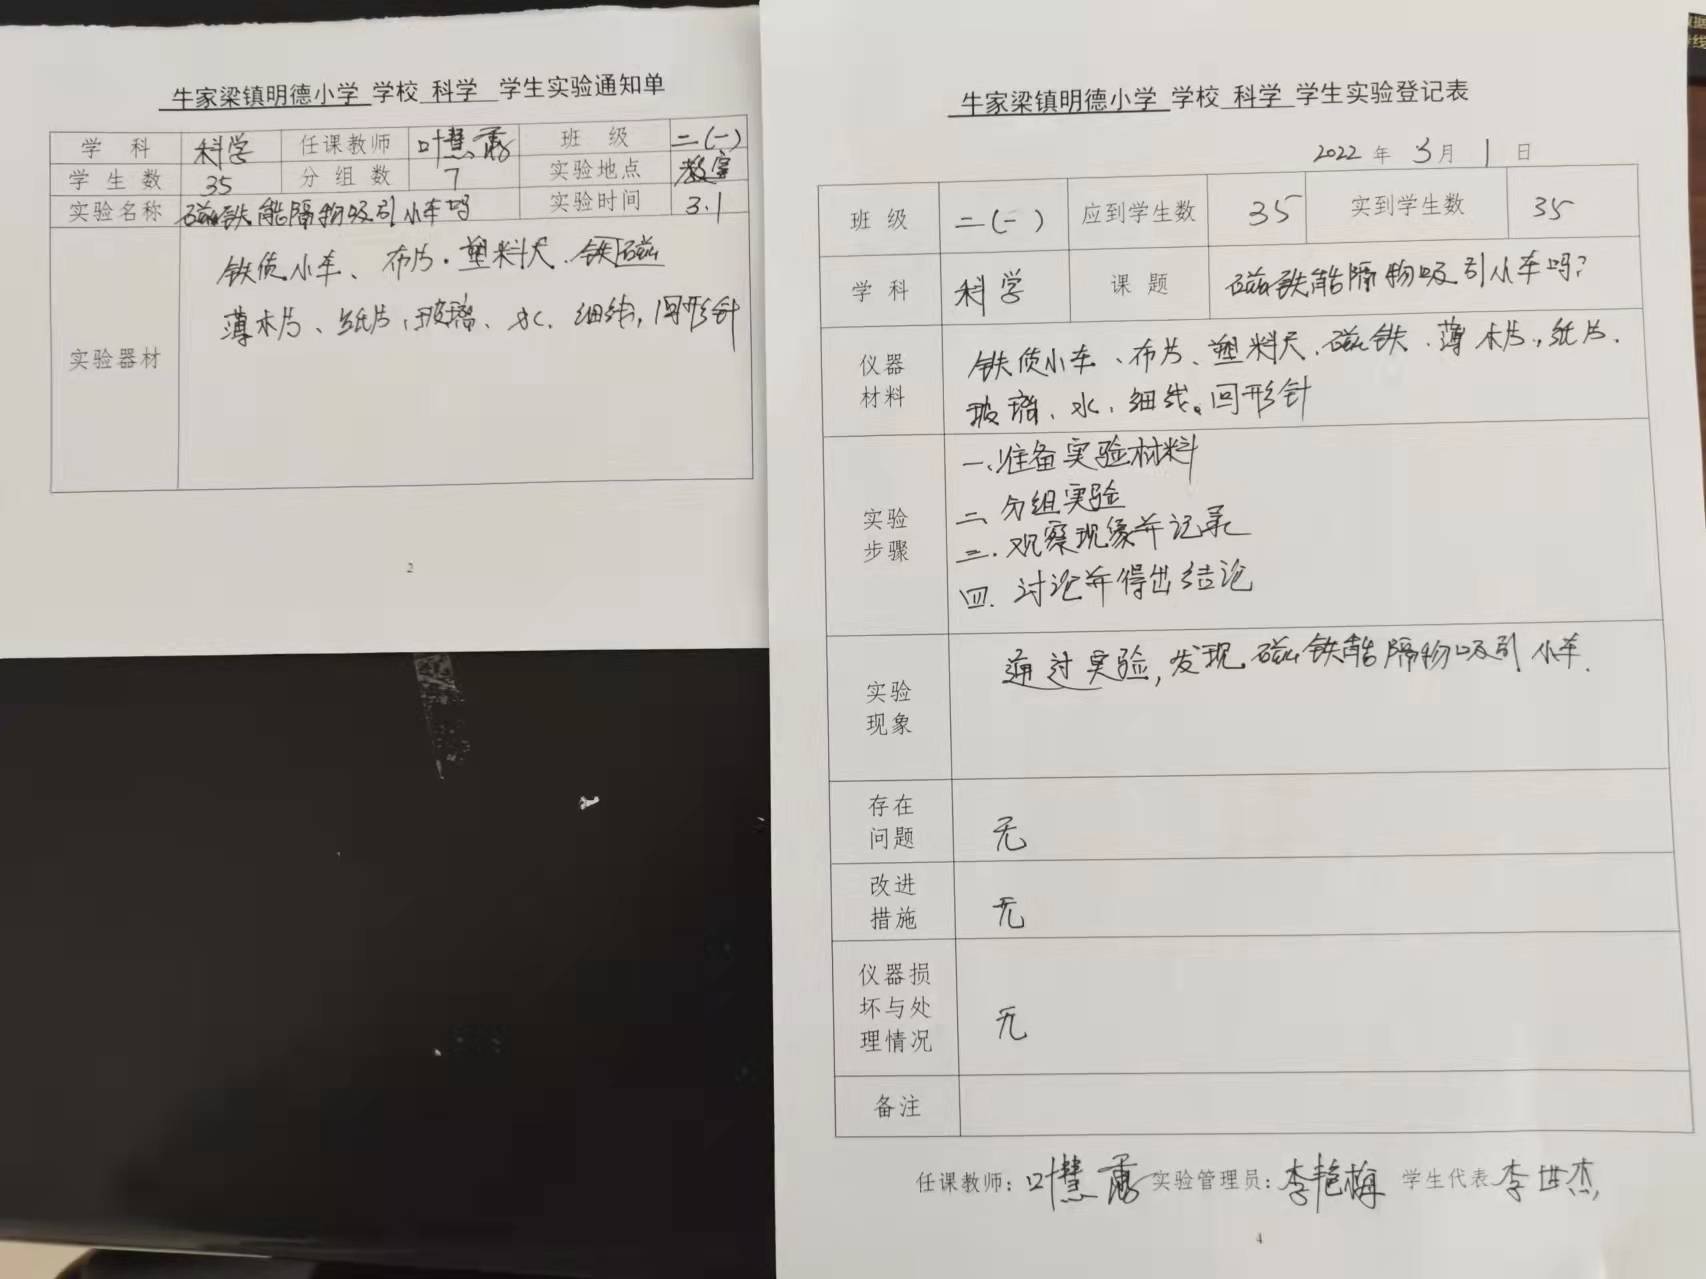 牛家梁镇明德小学 学校 科学 学生实验通知单
学 科 科学 任课教师 叶慧 班 级 二(一)
学 生 数 35 分 组 数 7 实验地点 教室
实验名称 磁铁能隔物吸引小车吗 实验时间 3.1
实验器材
铁质小车、布片、塑料尺、铁磁
薄木片、纸片、玻璃、水、细线,回形针
2
牛家梁镇明德小学 学校 科学 学生实验登记表
2022 年 3月 1 日
班 级 二(一) 应到学生数 35 实到学生数 35
学 科 科学 课 题 磁铁能隔物吸引小车吗?
仪器
材料
铁质小车、布片、塑料尺、磁铁、薄木片、纸片、
玻璃、水、细线。回形针
实验
步骤
一、准备实验材料
二、分组实验
三、观察现象并记录
四、讨论并得出结论
实验
现象
通过实验,发现磁铁能隔物吸引小车.
存在
问题
无
改进
措施
无
仪器损
坏与处
理情况
无
备注
任课教师:叶慧 实验管理员:李艳梅 学生代表 李世杰
4